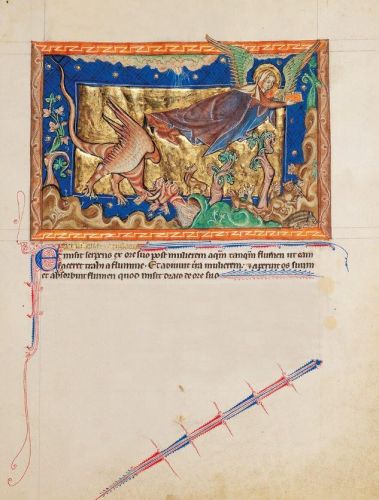 Emisit serpens ex ore suo post mulierem aqm tanqm flumen ut eam
faceret trahi a flumine. Et adiuvit terra mulierem. et aperuit os suum
et absorbuit flumen quod misit draco de ore suo